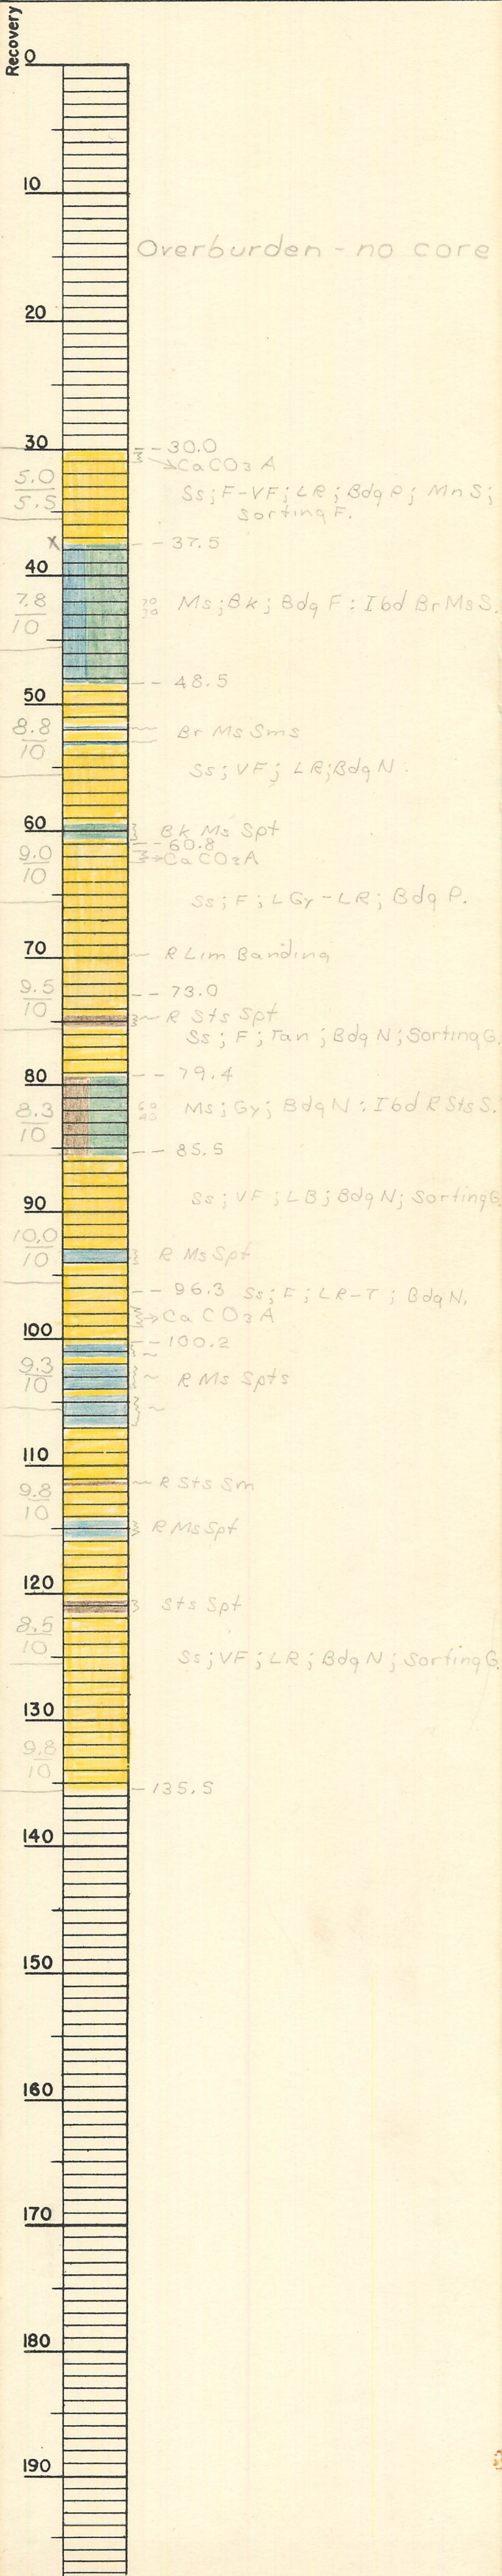 Recovery
0
10
Overburden - no core
20
30
- - 30.0
CaCO3 A
5.0
5.5
Ss; F-VF; LR; Bdg P; Mn S;
Sorting F.
X
- - 37.5
40
7.8
10
70
30
Ms; Bk; Bdg F: Ibd Br Ms S.
- - 48.5
50
8.8
10
Br Ms Sms
Ss; VF; LR; Bdg N.
60
Bk Ms Spt
- - 60.8
CaCO3 A
9.0
10
Ss; F; LGy-LR; Bdg P.
70
R Lim Banding
9.5
10
- - 73.0
R Sts Spt
Ss; F; Tan; Bdg N; Sorting G.
80
- - 79.4
8.3
10
60
40
Ms; Gy; Bdg N: Ibd R Sts S.
- - 85.5
90
Ss; VF; LB; Bdg N; Sorting G.
10.0
10
R Ms Spt
- - 96.3 Ss; F; LR-T; Bdg N.
CaCO3 A
100
- - 100.2
9.3
10
R Ms Spts
110
9.8
10
R Sts Sm
R Ms Spt
120
Sts Spt
8.5
10
Ss; VF; LR; Bdg N; Sorting G.
130
9.8
10
- 135.5
140
150
160
170
180
190